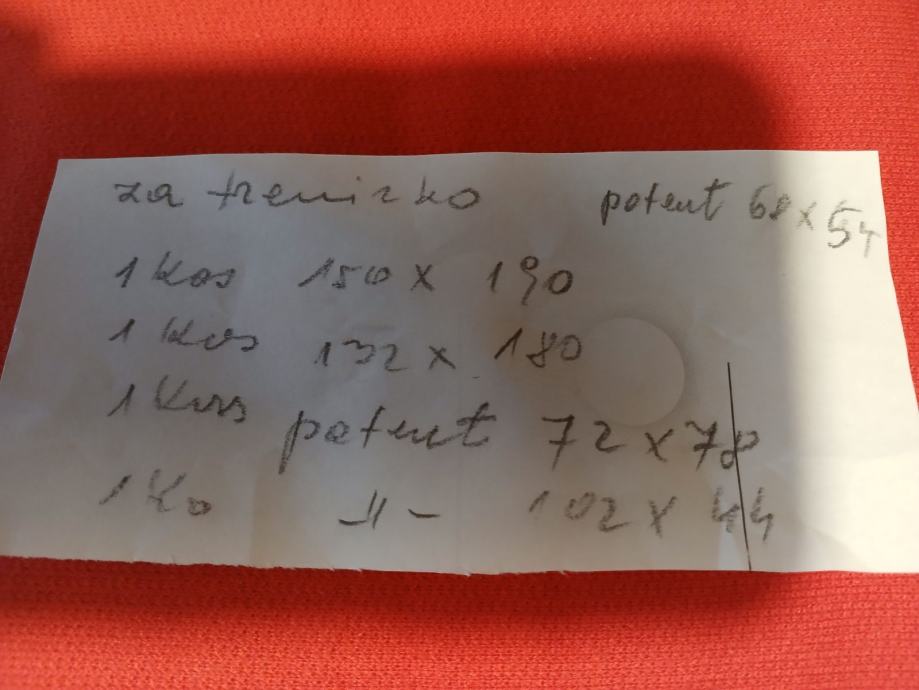 za trenirko potent 68 x 54
1 kos 150 x 190
1 kos 132 x 180
1 kos potent 72 x 78
1 ko -11- 102 x 44